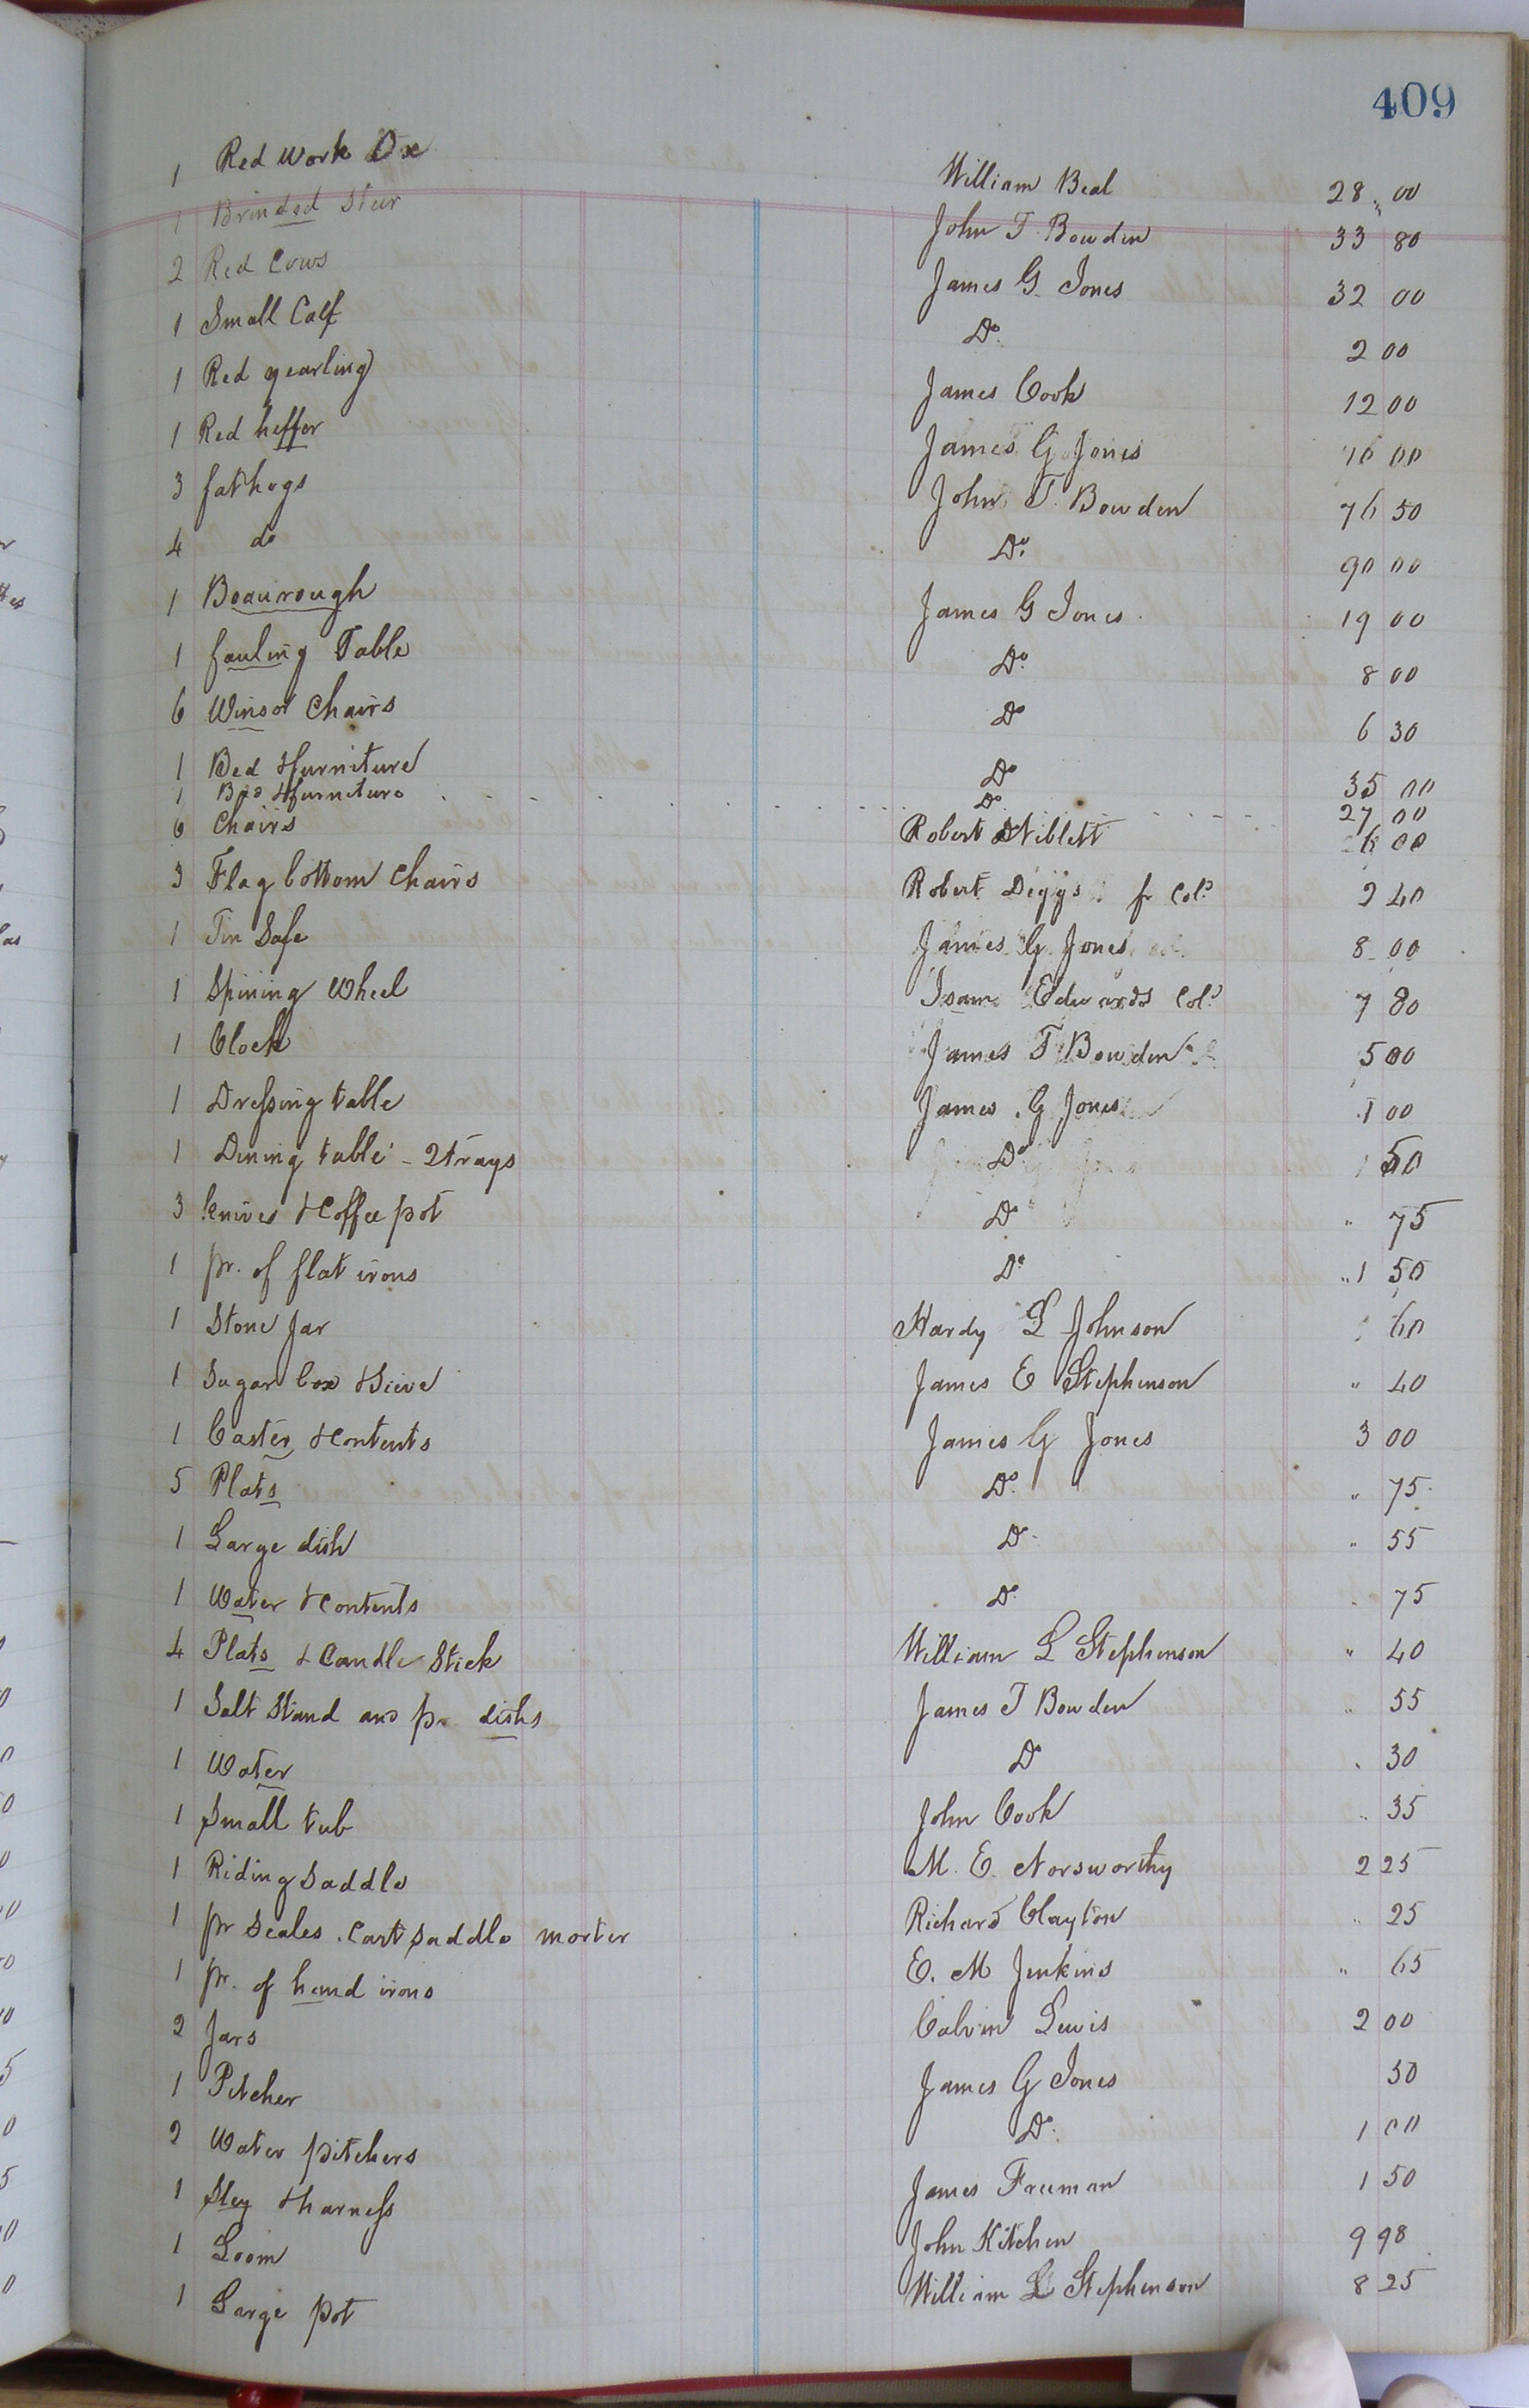 409
1 Red Work Ox William Beal 28 „ 00
1 Brinded Steer John T. Bowden 33 80
2 Red Cows James G. Jones 32 00
1 Small Calf Do. 2 00
1 Red yearling James Cook 12 00
1 Red heffer James G Jones 00
3 fat hogs John T. Bowden 76 50
4 do Do. 90 00
1 Boaurough James G Jones 19 00
1 fauling Table Do. 8 00
6 Winsor Chairs Do 6 30
1 Bed & furniture Do 35 00
1 Bed & furniture Do 27 00
6 Chairs Robert Niblett 6 00
3 Flag bottom Chairs Robert Diggs fr Cold 2 40
1 Tin Safe James G. Jones 8 00
1 Spining Wheel Isam Edwards Cold 7 80
1 Clock James T. Bowden 5 00
1 Dressing table James G Jones 1 00
1 Dining table - 2 trays Do 1 50
3 knives & Coffee pot Do " 75
1 pr. of flat irons Do " 1 50
1 Stone Jar Hardy L Johnson 60
1 Sugar box & Sieve James E Stephenson " 40
1 Caster & Contents James G Jones 3 00
5 Plats Do. " 75
1 Large dish Do " 55
1 Water & Contents Do. 75
4 Plats & Candle Stick William L Stephenson " 40
1 Salt Stand and pr dishs James T Bowden " 55
1 Water Do 30
1 Small tub John Cook " 35
1 Riding Saddle M. E. Norsworthy 2 25
1 pr Scales . Cart Saddle morter Richard Clayton " 25
1 pr. of hand irons E. M Jenkins " 65
2 Jars Calvin Lewis 2 00
1 Pitcher James G Jones 50
2 Water pitchers Do. 1 00
1 Sley & harness James Freeman 1 50
1 Loom John Kitchen 9 98
1 Large pot William L Stephenson 8 25